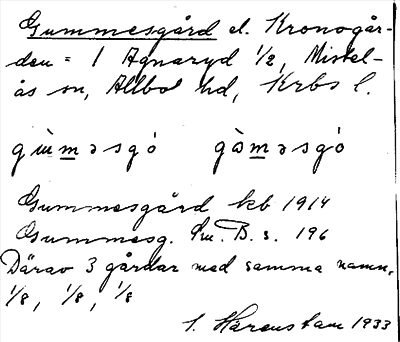 Gummesgård el. Kronogår-
den = 1 Agnaryd 1/2, Mistel-
ås sn, Allbo hd, Krbs l.
gùm̲əsgó gòm̲əsgó
Gummesgård kb 1914
Gummesg. Sm. B. s. 196
Därav 3 gårdar med samma namn,
1/8, 1/8, 1/8
J. Härenstam 1933